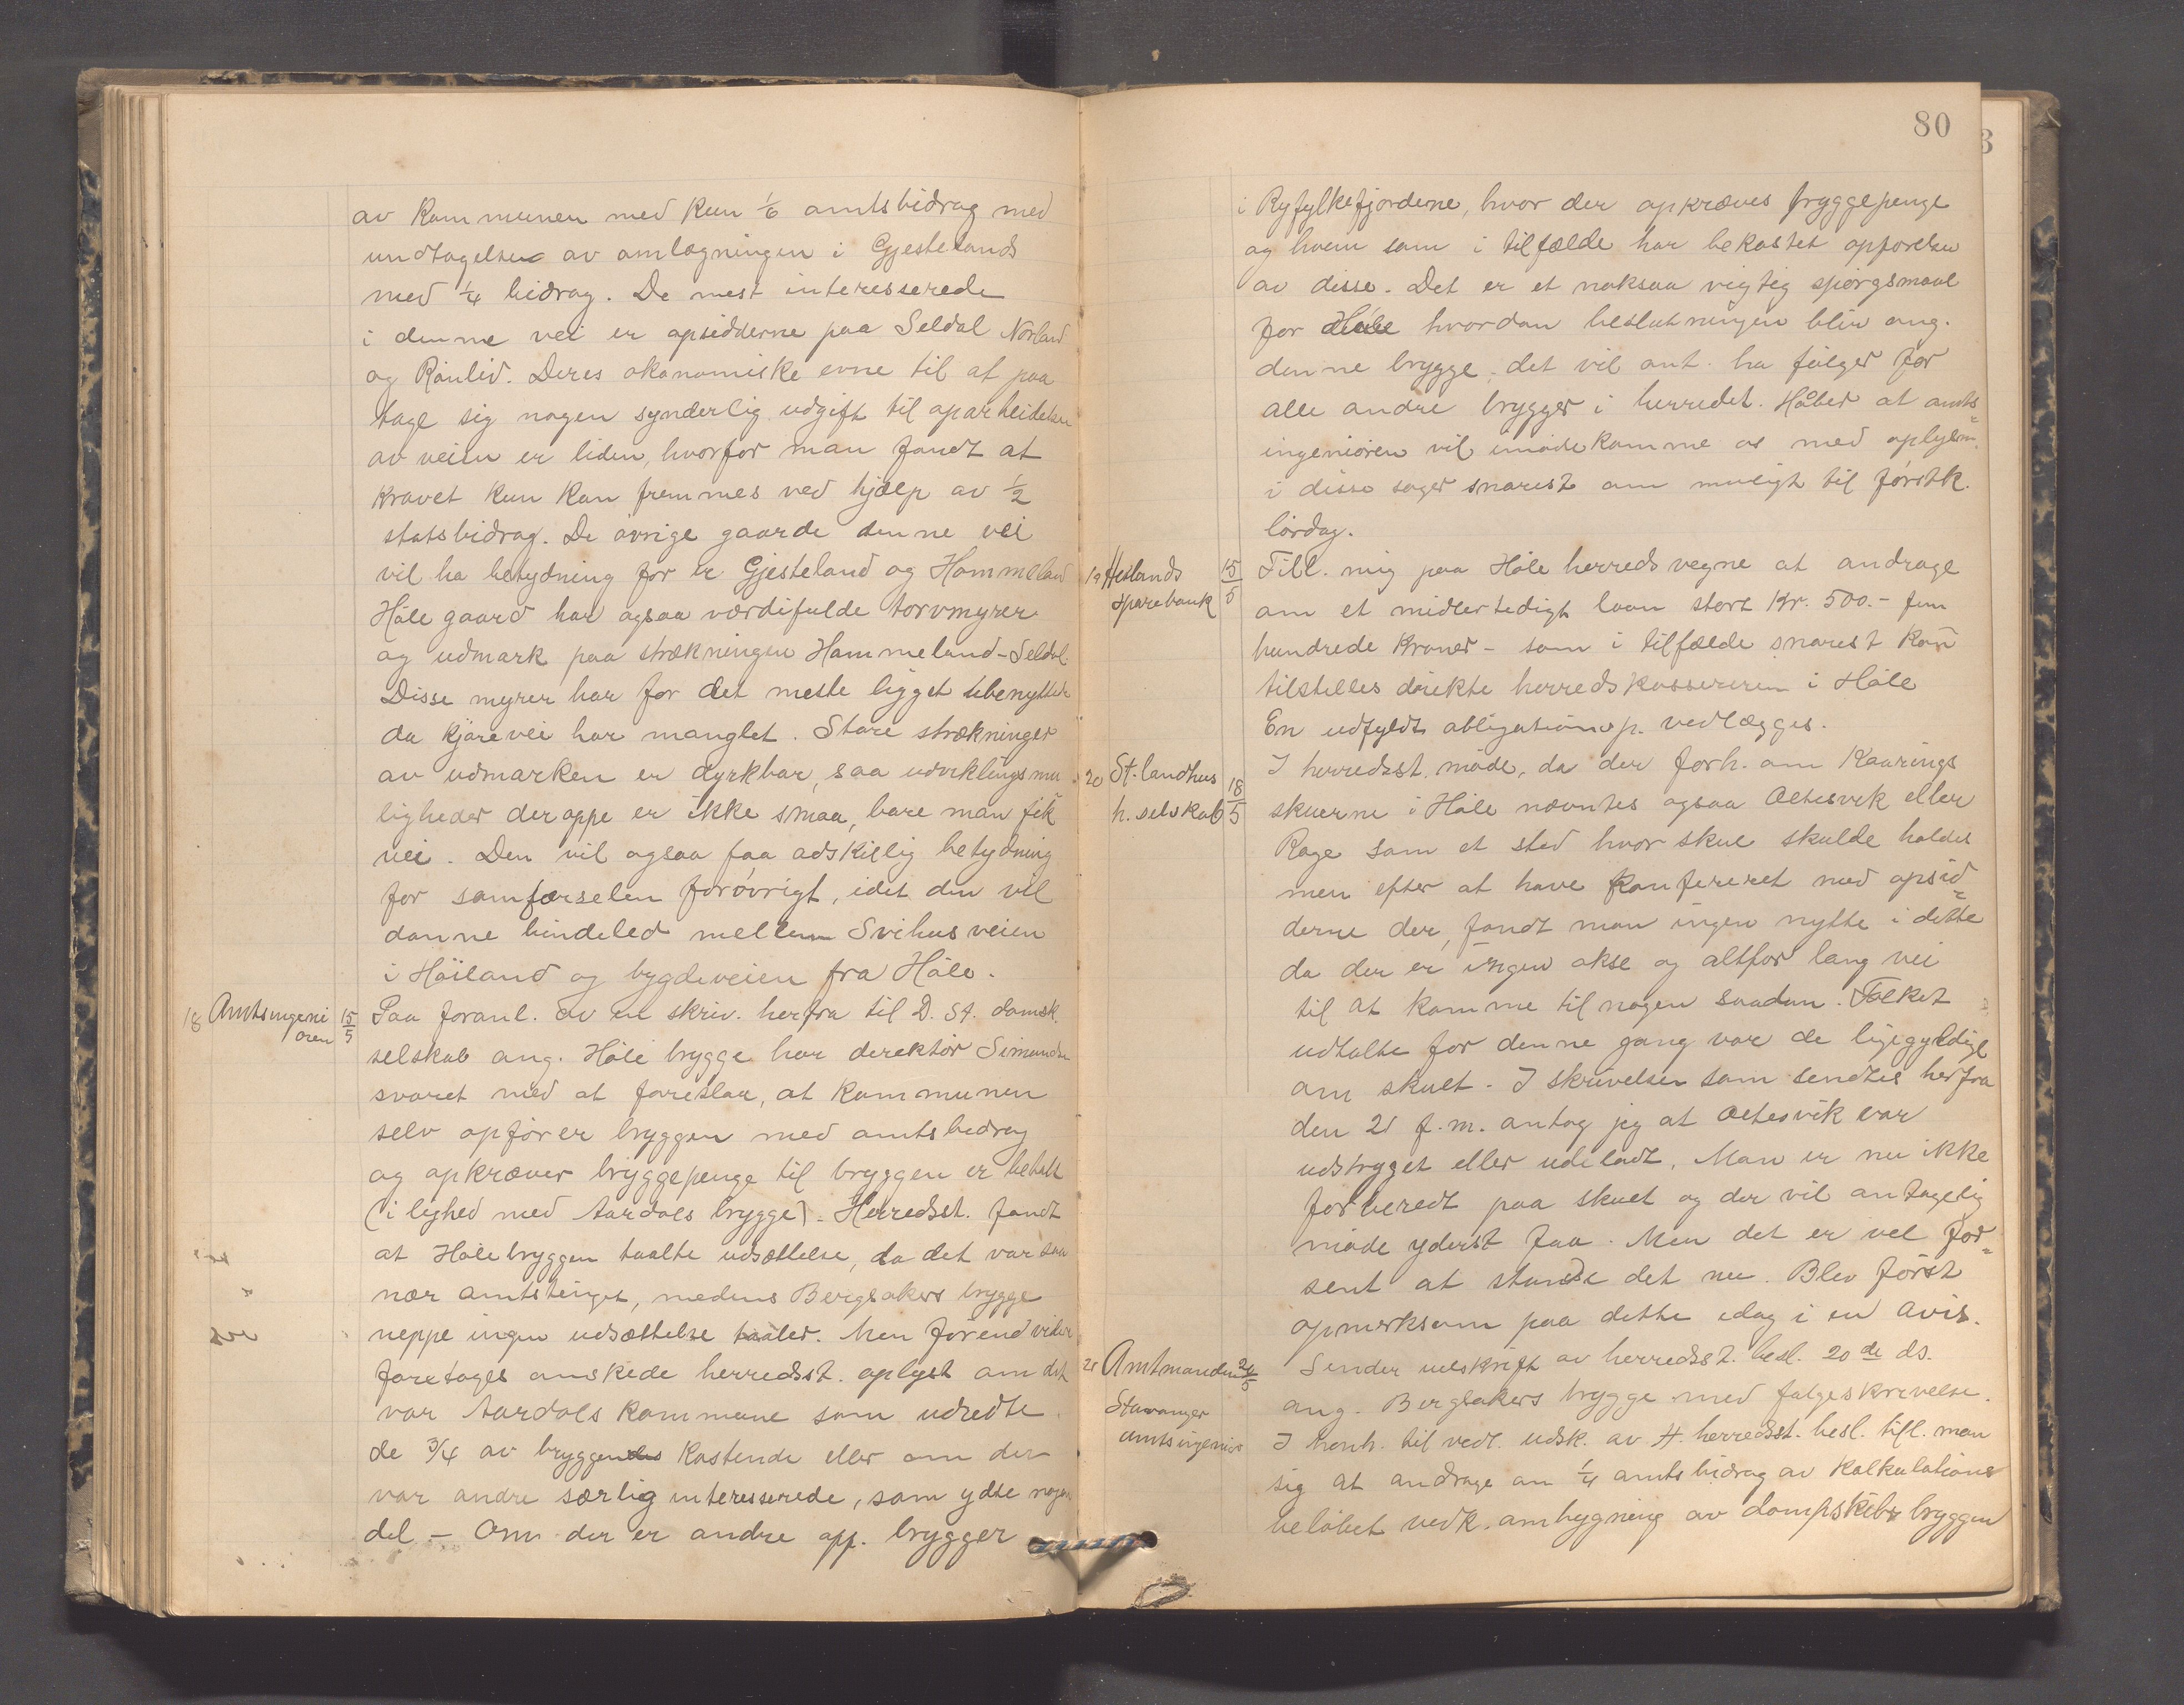 av Kommunen med kun 1/6 amtsbidrag med
undtagelse av omlægningen i Gjestelands
med 1/4 bidrag. De mest interesserede
i denne vei er opsidderne paa Seldal Norland
og Rönlid. Deres økonomiske evne til at paa
tage sig nogen synderlig udgift til oparbeidelsen
av veien er liden, hvorfor man fandt at
kravet kun kan fremmes ved hjælp av 1/2
statsbidrag. De øvrige gaarde denne vei
vil ha betydning for er Gjesteland og Hommeland
Höle gaard har ogsaa værdifulde torvmyrer
og udmark paa strækningen Hommeland-Seldal
Disse myrer har for det meste ligget ubenyttet
da kjørevei har manglet. Store strækninger
av udmarken er dyrkbar, saa udviklingsmu
ligheder deroppe er ikke smaa, bare man fik
vei. Den vil ogsaa faa adskillig betydning
for samfærselen forøvrigt, idet den vil
danne bindeled mellem Svihus veien
i Höiland og bygdeveien fra Höle.
18 Amtsingeni
ören
15/5 Paa foranl. av en skriv. herfra til D. St. damsk.
selskab ang. Höle brygge har direktör Simonsen
svaret med at foreslaa, at kommunen
selv opfører bryggen med amtsbidrag
og opkræver bryggepenge til bryggen er betalt
(i lighed med Aardals brygge). Herredsst. fandt
at Hölebryggen taalte udsættelse, da det var saa
nær amtstinget, medens Bergsakers brygge
neppe ingen udsættelse taaler. Men förend videre
foretages ønskede herredsst. oplyst om det
var Aardals kommune som udredte
de 3/4 av bryggens kostende eller om der
var andre særlig interesserede, som ydte nogen
del - Om der er andre opp. brygger
80
i Ryfylkefjordene, hvor der opkræves bryggepenge
og hvem som i tilfælde har bekostet opførelsen
av disse. Det er et noksaa vigtig spørgsmaal
for Höle hvordan beslutningen blir ang.
denne brygge, det vil ant. ha følger for
alle andre brygger i herredet. Håber at amts=
ingeniören vil imødekomme os med oplysn.
i disse sager snarest om muligt til förstk.
lördag.
19 Hetlands
sparebank
15/5 Till. mig paa Höle herreds vegne at andrage
om et midlertidigt laan stort Kr. 500.- fem
hundrede kroner - som i tilfælde snarest kan
tilstilles direkte herredskassereren i Höle
En udfyldt obligation vedlægges.
20 St. landhus
h. selskab
18/5 I herredsst. møde, da der forh. om Kaarings
skuerne i Höle nævntes ogsaa Oltesvik eller
Rage som et sted hvor skue skulde holdes
men efter at have konfereret med opsid=
derne der, fandt man ingen nytte i dette
da der er ingen okse og altfor lang vei
til at komme til nogen saadan. Folket
udtalte for denne gang var de ligegyldige
om skuet. I skrivelse som sendtes herfra
den 21 f.m. antog jeg at Oltesvik var
udstryget eller udeladt. Man er nu ikke
forberedt paa skuet og der vil antagelig
møde yderst faa. Men det er vel for=
sent at stanse det nu. Blev först
opmerksom paa dette idag i en avis.
21 Amtmanden
Stavanger
amtsingeniør
Sender udskrift av herredsst. besl. 20de ds.
ang. Bergsakers brygge med følgeskrivelse.
I henh. til vedl. udsk. av H. herredsst. besl. till. man
sig at andrage om 1/4 amtsbidrag av kalkulations
beløbet vedk. ombygning av dampskibsbryggen